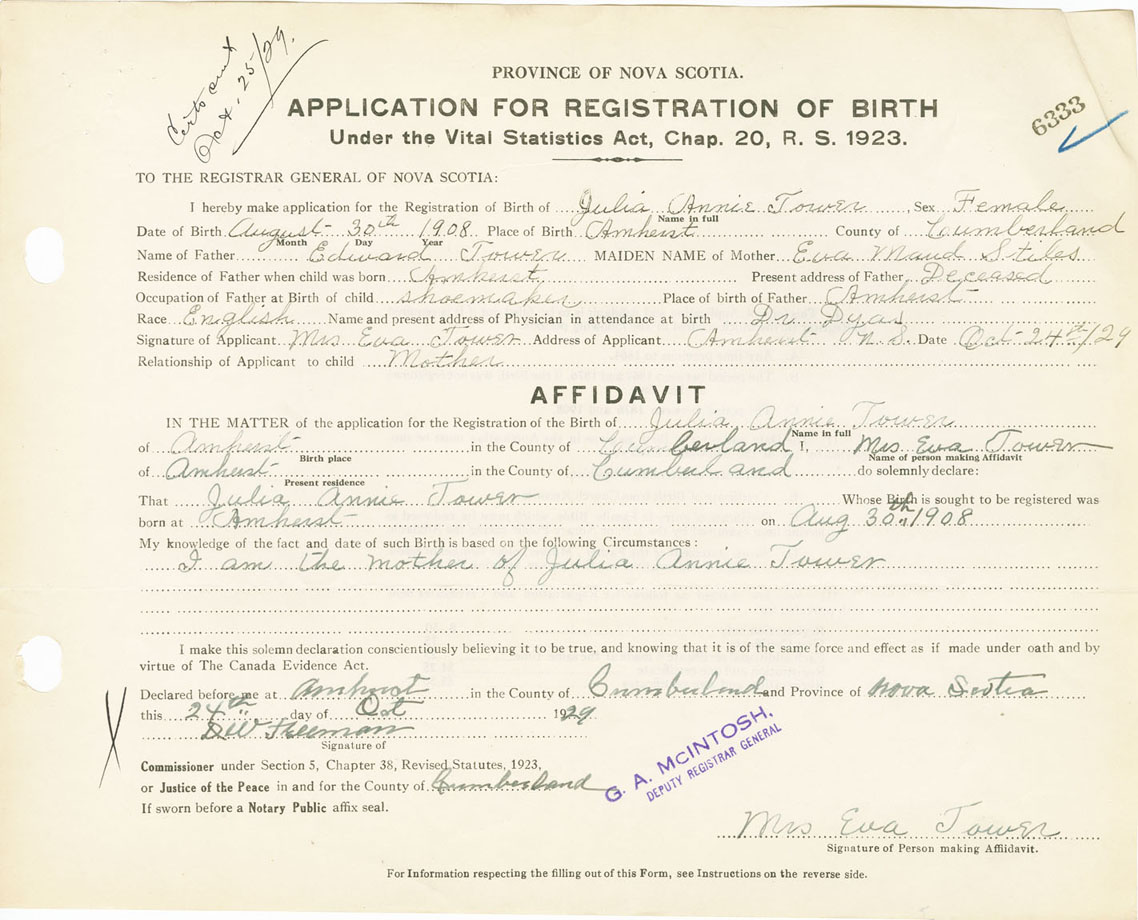 Cert sent
Oct. 25/29.
PROVINCE OF NOVA SCOTIA.
APPLICATION FOR REGISTRATION OF BIRTH
6333
Under the Vital Statistics Act, Chap. 20, R. S. 1923.
TO THE REGISTRAR GENERAL OF NOVA SCOTIA:
I hereby make application for the Registration of Birth of Julia Annie Tower, Sex Female
Name in full
Date of Birth August 30th 1908 Place of Birth Amherst County of Cumberland
Month Day Year
Name of Father Edward Tower MAIDEN NAME of Mother Eva Maud Stiles
Residence of Father when child was born Amherst Present address of Father Deceased
Occupation of Father at Birth of child shoemaker Place of birth of Father Amherst
Race English Name and present address of Physician in attendance at birth Dr Dyas
Signature of Applicant Mrs Eva Tower Address of Applicant Amherst N.S. Date Oct 24th/29
Relationship of Applicant to child Mother
AFFIDAVIT
IN THE MATTER of the application for the Registration of the Birth of Julia Annie Tower
Name in full
of Amherst in the County of Cumberland I, Mrs. Eva Tower
Birth place Name of person making Affidavit
of Amherst in the County of Cumberland do solemnly declare:
Present residence
That Julia Annie Tower Whose Birth is sought to be registered was
born at Amherst on Aug 30th 1908
My knowledge of the fact and date of such Birth is based on the following Circumstances :
I am the mother of Julia Annie Tower
I make this solemn declaration conscientiously believing it to be true, and knowing that it is of the same force and effect as if made under oath and by
virtue of The Canada Evidence Act.
Declared before me at Amherst in the County of Cumberland and Province of Nova Scotia
this 24th day of Oct 1929
D W Freeman
Signature of
G. A. McINTOSH,
DEPUTY REGISTRAR GENERAL
Commissioner under Section 5, Chapter 38, Revised Statutes, 1923,
or Justice of the Peace in and for the County of Cumberland
If sworn before a Notary Public affix seal.
Mrs Eva Tower
Signature of Person making Affiidavit.
For Information respecting the filling out of this Form, see Instructions on the reverse side.